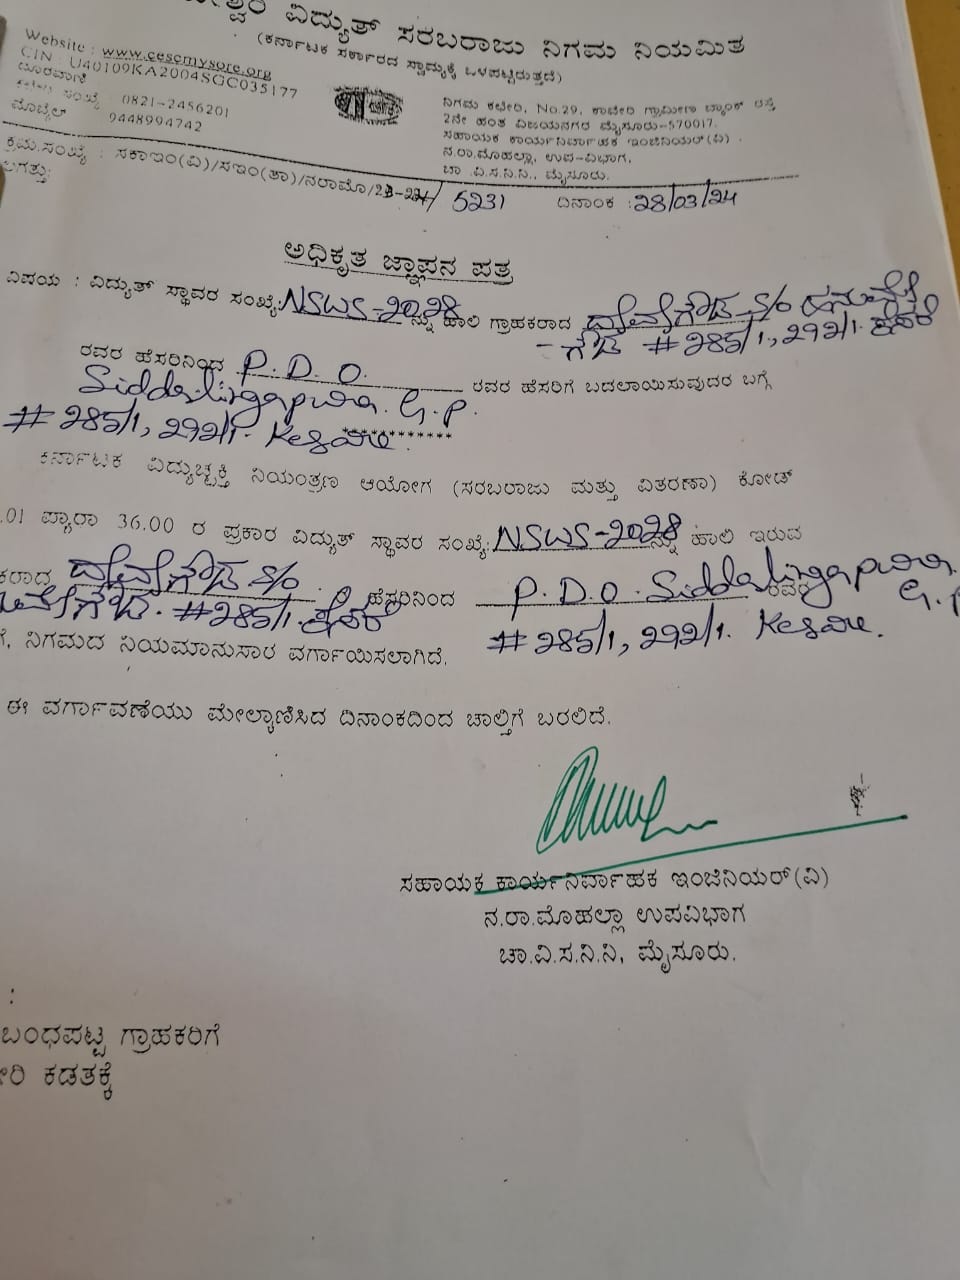 ವಿದ್ಯುತ್ ಸರಬರಾಜು ನಿಗಮ ನಿಯಮಿತ
(ಕರ್ನಾಟಕ ಸರ್ಕಾರದ ಸ್ವಾಮ್ಯಕ್ಕೆ ಒಳಪಟ್ಟಿರುತ್ತದೆ)
Website : www.cescmysore.org
CIN : U40109KA2004SGC035177
ದೂರವಾಣಿ
ಕಛೇರಿ ಸಂಖ್ಯೆ 0821-2456201
ಮೊಬೈಲ್ 9448994742
ನಿಗಮ ಕಛೇರಿ, No.29, ಕಾವೇರಿ ಗ್ರಾಮೀಣ ಬ್ಯಾಂಕ್ ರಸ್ತೆ
2ನೇ ಹಂತ ವಿಜಯನಗರ ಮೈಸೂರು-570017.
ಸಹಾಯಕ ಕಾರ್ಯನಿರ್ವಾಹಕ ಇಂಜಿನಿಯರ್(ವಿ)
ನ.ರಾ.ಮೊಹಲ್ಲಾ, ಉಪ-ವಿಭಾಗ,
ಚಾ.ವಿ.ಸ.ನಿ.ನಿ., ಮೈಸೂರು.
ಕ್ರಮ.ಸಂಖ್ಯೆ : ಸಕಾಇಂ(ವಿ)/ಸಇಂ(ತಾ)/ನರಾಮೊ/ 5231 ದಿನಾಂಕ :28/03/24
ಲಗತ್ತು:
ಅಧಿಕೃತ ಜ್ಞಾಪನ ಪತ್ರ
ವಿಷಯ : ವಿದ್ಯುತ್ ಸ್ಥಾವರ ಸಂಖ್ಯೆ: NSWS-2028 ನ್ನು ಹಾಲಿ ಗ್ರಾಹಕರಾದ ದೇವೇಗೌಡ S/o
ಗೌಡ #285/1, 292/1. ಕೆಸರೆ
ರವರ ಹೆಸರಿನಿಂದ P.D.O. ರವರ ಹೆಸರಿಗೆ ಬದಲಾಯಿಸುವುದರ ಬಗ್ಗೆ
Siddalingapura. G.P.
#285/1, 292/1. Kesare.
**********
ಕರ್ನಾಟಕ ವಿದ್ಯುಚ್ಛಕ್ತಿ ನಿಯಂತ್ರಣ ಆಯೋಗ (ಸರಬರಾಜು ಮತ್ತು ವಿತರಣಾ) ಕೋಡ್
.01 ಪ್ಯಾರಾ 36.00 ರ ಪ್ರಕಾರ ವಿದ್ಯುತ್ ಸ್ಥಾವರ ಸಂಖ್ಯೆ: NSWS-2028 ನ್ನು ಹಾಲಿ ಇರುವ
ಕರಾದ ದೇವೇಗೌಡ S/o ಹೆಸರಿನಿಂದ P.D.O. Siddalingapura. ರವರ
#285/1. ಕೆಸರೆ G.P
#285/1, 292/1. Kesare.
ಗೆ, ನಿಗಮದ ನಿಯಮಾನುಸಾರ ವರ್ಗಾಯಿಸಲಾಗಿದೆ.
ಈ ವರ್ಗಾವಣೆಯು ಮೇಲ್ಕಾಣಿಸಿದ ದಿನಾಂಕದಿಂದ ಚಾಲ್ತಿಗೆ ಬರಲಿದೆ.
ಸಹಾಯಕ ಕಾರ್ಯನಿರ್ವಾಹಕ ಇಂಜಿನಿಯರ್(ವಿ)
ನ.ರಾ.ಮೊಹಲ್ಲಾ ಉಪವಿಭಾಗ
ಚಾ.ವಿ.ಸ.ನಿ.ನಿ, ಮೈಸೂರು.
:
ಬಂಧಪಟ್ಟ ಗ್ರಾಹಕರಿಗೆ
ೇರಿ ಕಡತಕ್ಕೆ